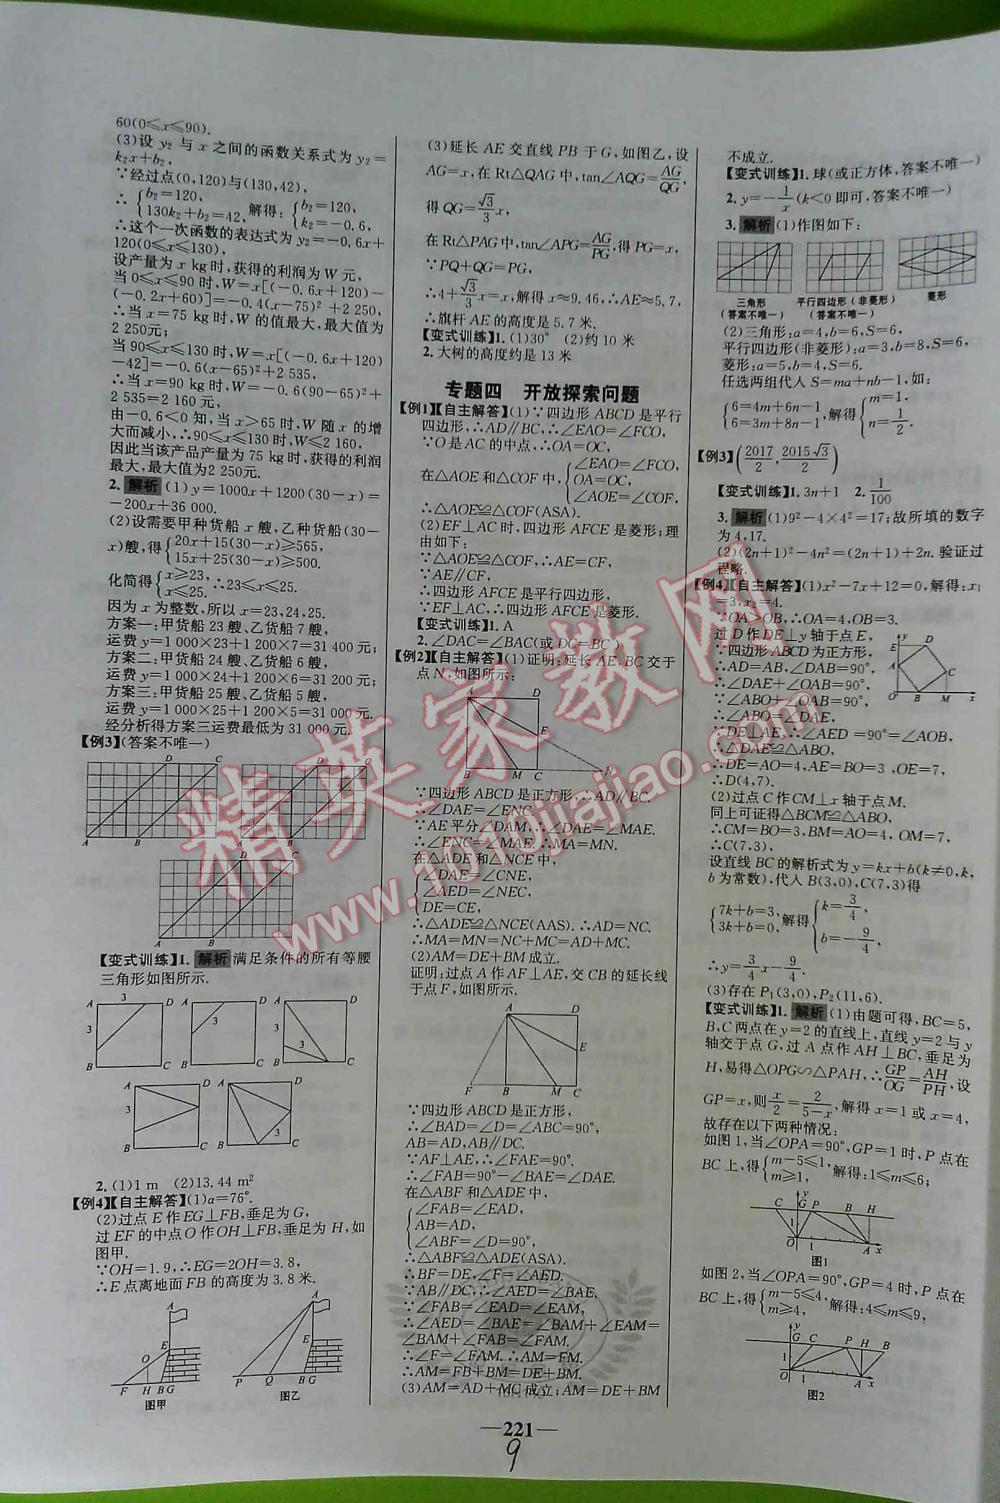 60(0≤x≤90).
(3)设 y₂ 与 x 之间的函数关系式为 y₂=
k₂x+b₂,
∵经过点(0,120)与(130,42),
∴{b₂=120, 130k₂+b₂=42, 解得:{b₂=120, k₂=-0.6,
∴这个一次函数的表达式为 y₂=-0.6x+
120(0≤x≤130),
设产量为 x kg时,获得的利润为 W 元,
当 0≤x≤90 时,W=x[(-0.6x+120)-
(-0.2x+60)]=-0.4(x-75)²+2 250,
∴当 x=75 时,W 的值最大,最大值为
2 250元;
当 90≤x≤130 时,W=x[(-0.6x+120)
-42]=-0.6(x-65)²+2 535,
∴当 x=90 时,W=-0.6(90-65)²+
2 535=2 160元,
由-0.6<0 知,当 x>65 时,W 随 x 的增
大而减小,∴90≤x≤130时,W≤2 160,
因此当该产品产量为 75 kg时,获得的利润
最大,最大值为2 250元.
2. 解析 (1)y=1000x+1200(30-x)=
-200x+36 000.
(2)设需要甲种货船 x 艘,乙种货船(30-
x)艘,得{20x+15(30-x)≥565, 15x+25(30-x)≥500.
化简得{x≥23, x≤25. ∴23≤x≤25.
因为 x 为整数,所以 x=23,24,25,
方案一:甲货船 23 艘、乙货船 7 艘,
运费 y=1 000×23+1 200×7=31 400元;
方案二:甲货船 24 艘、乙货船 6 艘,
运费 y=1 000×24+1 200×6=31 200元;
方案三:甲货船 25 艘、乙货船 5 艘,
运费 y=1 000×25+1 200×5=31 000 元.
经分析得方案三运费最低为 31 000 元.
【例3】(答案不唯一)
D C D C
A B A B
D C
A B
【变式训练】1. 解析 满足条件的所有等腰
三角形如图所示.
A 3 D A D A D
3 3
B C B C B 3 C
A D A D
3
B C B C
2. (1)1 m (2)13.44 m²
【例4】【自主解答】(1)α=76°.
(2)过点 E 作 EG⊥FB,垂足为 G,
过 EF 的中点 O 作 OH⊥FB,垂足为 H,如
图甲.
∵OH=1.9,∴EG=2OH=3.8,
∴E点离地面 FB 的高度为 3.8 米.
A A
O E E
F H B G P Q B G
图甲 图乙
(3)延长 AE 交直线 PB 于 G,如图乙,设
AG=x,在 Rt△QAG 中,tan∠AQG=AG/QG,
得 QG=√3/3 x,
在 Rt△PAG 中,tan∠APG=AG/PG,得 PG=x,
∵PQ+QG=PG,
∴4+√3/3 x=x,解得 x≈9.46,∴AE≈5.7,
∴旗杆 AE 的高度是 5.7 米.
【变式训练】1.(1)30° (2)约 10 米
2. 大树的高度约是 13 米
专题四 开放探索问题
【例1】【自主解答】(1)∵四边形 ABCD 是平行
四边形,∴AD∥BC,∴∠EAO=∠FCO,
∵O是 AC 的中点,∴OA=OC,
在△AOE 和△COF 中,{∠EAO=∠FCO, OA=OC, ∠AOE=∠COF,
∴△AOE≌△COF(ASA).
(2)EF⊥AC时,四边形 AFCE 是菱形;理
由如下:
∵△AOE≌△COF,∴AE=CF,
∵AE∥CF,
∴四边形 AFCE 是平行四边形,
∵EF⊥AC,∴四边形 AFCE 是菱形.
【变式训练】1. A
2. ∠DAC=∠BAC(或 DC=BC)
【例2】【自主解答】(1)证明:延长 AE、BC 交于
点 N,如图所示:
A D
E
B M C N
∵四边形 ABCD 是正方形,∴AD∥BC.
∴∠DAE=∠ENC.
∵AE 平分∠DAM,∴∠DAE=∠MAE.
∴∠ENC=∠MAE.∴MA=MN.
在△ADE 和△NCE 中,
{∠DAE=∠CNE, ∠AED=∠NEC, DE=CE,
∴△ADE≌△NCE(AAS).∴AD=NC.
∴MA=MN=NC+MC=AD+MC.
(2)AM=DE+BM 成立.
证明:过点 A 作 AF⊥AE,交 CB 的延长线
于点 F,如图所示.
A D
E
F B M C
∵四边形 ABCD 是正方形,
∴∠BAD=∠D=∠ABC=90°,
AB=AD,AB∥DC.
∵AF⊥AE,∴∠FAE=90°.
∴∠FAB=90°-∠BAE=∠DAE.
在△ABF 和△ADE 中,
{∠FAB=∠EAD, AB=AD, ∠ABF=∠D=90°,
∴△ABF≌△ADE(ASA).
∴BF=DE,∠F=∠AED.
∵AB∥DC,∴∠AED=∠BAE.
∵∠FAB=∠EAD=∠EAM,
∴∠AED=∠BAE=∠BAM+∠EAM=
∠BAM+∠FAB=∠FAM.
∴∠F=∠FAM.∴AM=FM.
∴AM=FB+BM=DE+BM.
(3)AM=AD+MC 成立;AM=DE+BM
不成立.
【变式训练】1. 球(或正方体,答案不唯一)
2. y=-1/x(k<0 即可,答案不唯一)
3. 解析 (1)作图如下:
三角形 平行四边形(非菱形) 菱形
(答案不唯一) (答案不唯一)
(2)三角形:a=4,b=6,S=6,
平行四边形(非菱形):a=3,b=8,S=6,
菱形:a=5,b=4,S=6.
任选两组代入 S=ma+nb-1,如:
{6=4m+6n-1, 6=3m+8n-1, 解得{m=1, n=1/2.
【例3】(2017/2, 2015√3/2)
【变式训练】1. 3n+1 2. 1/100
3. 解析 (1)9²-4×4²=17;故所填的数字
为 4,17.
(2)(2n+1)²-4n²=(2n+1)+2n. 验证过
程略.
【例4】【自主解答】(1)x²-7x+12=0,解得:x₁
=3,x₂=4.
∵OA>OB,∴OA=4,OB=3.
过 D 作 DE⊥y 轴于点 E,
∵四边形 ABCD 为正方形,
∴AD=AB,∠DAB=90°,
∴∠DAE+∠OAB=90°,
∵∠ABO+∠OAB=90°,
∴∠ABO=∠DAE,
∵DE⊥AE,∴∠AED=90°=∠AOB,
∴△DAE≌△ABO,
∴DE=AO=4,AE=OB=3,OE=7,
∴D(4,7).
y E D A C O B M x
(2)过点 C 作 CM⊥x 轴于点 M.
同上可证得△BCM≌△ABO,
∴CM=BO=3,BM=AO=4,OM=7,
∴C(7,3),
设直线 BC 的解析式为 y=kx+b(k≠0,k,
b 为常数),代入 B(3,0),C(7,3)得
{7k+b=3, 3k+b=0, 解得{k=3/4, b=-9/4,
∴y=3/4 x-9/4.
(3)存在 P₁(3,0),P₂(11,6).
【变式训练】1. 解析 (1)由题可得,BC=5,
B,C 两点在 y=2 的直线上,直线 y=2 与 y
轴交于点 G,过 A 点作 AH⊥BC,垂足为
H,易得△OPG∽△PAH,∴GP/OG=AH/PH,设
GP=x,则 x/2=2/(5-x),解得 x=1 或 x=4,
故存在以下两种情况:
如图 1,当∠OPA=90°,GP=1时,P 点在
BC 上,得{m-5≤1, m≥1, 解得:1≤m≤6;
y C G P B H 1 O 1 A x
图1
如图 2,当∠OPA=90°,GP=4 时,P 点在
BC 上,得{m-5≤4, m≥4, 解得:4≤m≤9,
y G C P H B 1 O 1 A x
图2
—221—
9
精英家教网
www.1010jiajiao.com